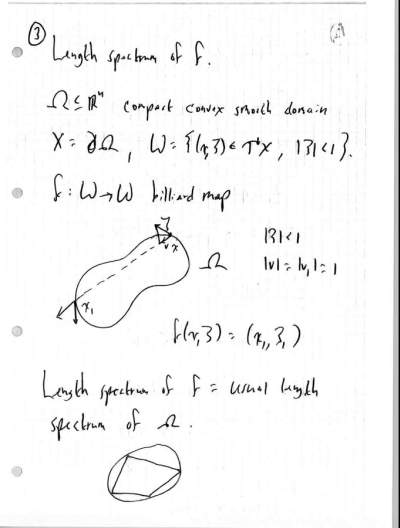 ③
Length spectrum of f.
Ω ⊆ ℝⁿ compact convex smooth domain
X = ∂Ω, W = {(x,ξ) ∈ T*X, |ξ|<1}.
f: W → W billiard map
ξ
v x
|ξ|<1
Ω
|v| = |v₁| = 1
x₁
f(x,ξ) = (x₁,ξ₁)
Length spectrum of f = usual length
spectrum of Ω.